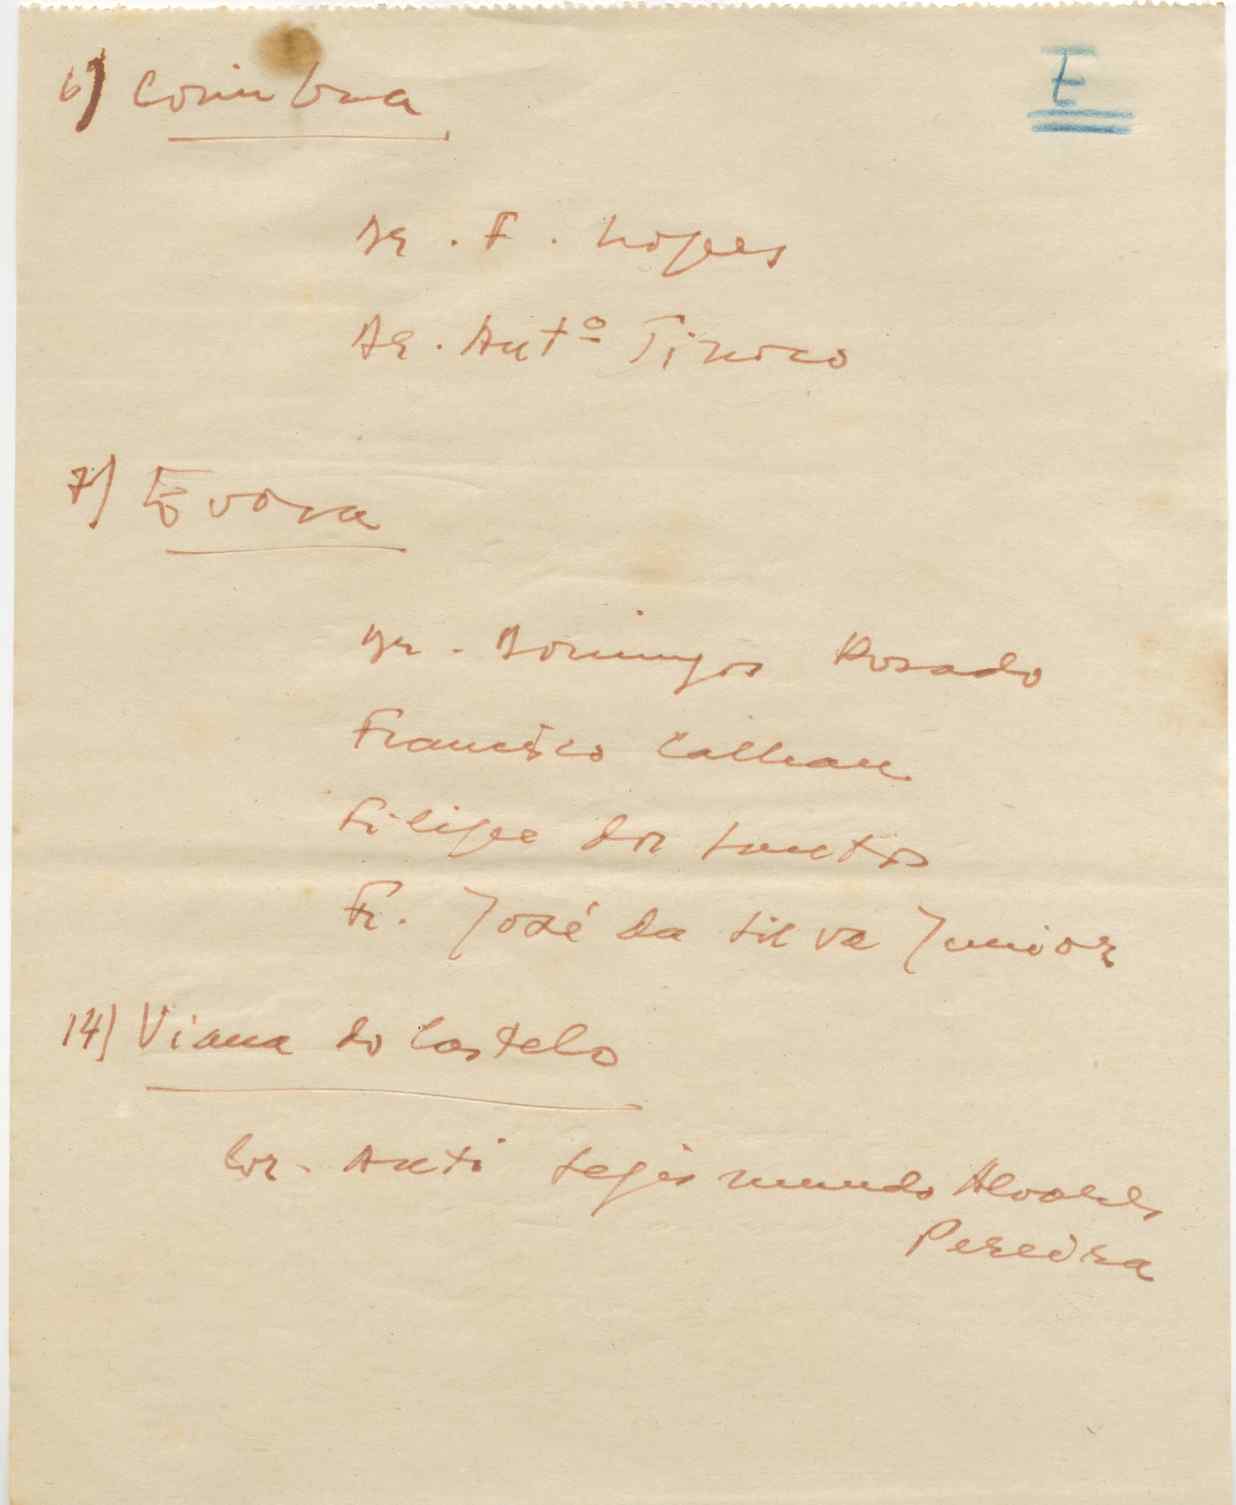 E
6) Coimbra
Dr. F. Lopes
Dr. Antº Tinoco
7) Evora
Dr. Domingos Rosado
Francisco Calhau
Filipe dos Santos
Fr. José da Silva Junior
14) Viana do Castelo
Cor. Anti Segismundo Alvares
Pereira